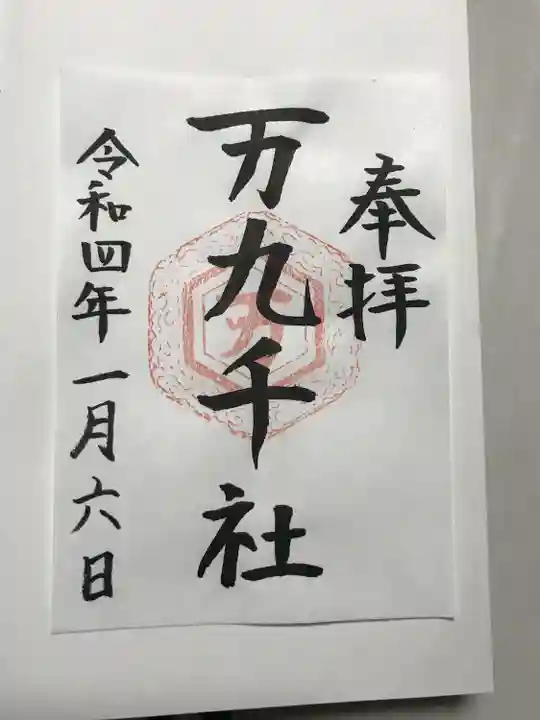 奉拝
万九千社
令和四年一月六日